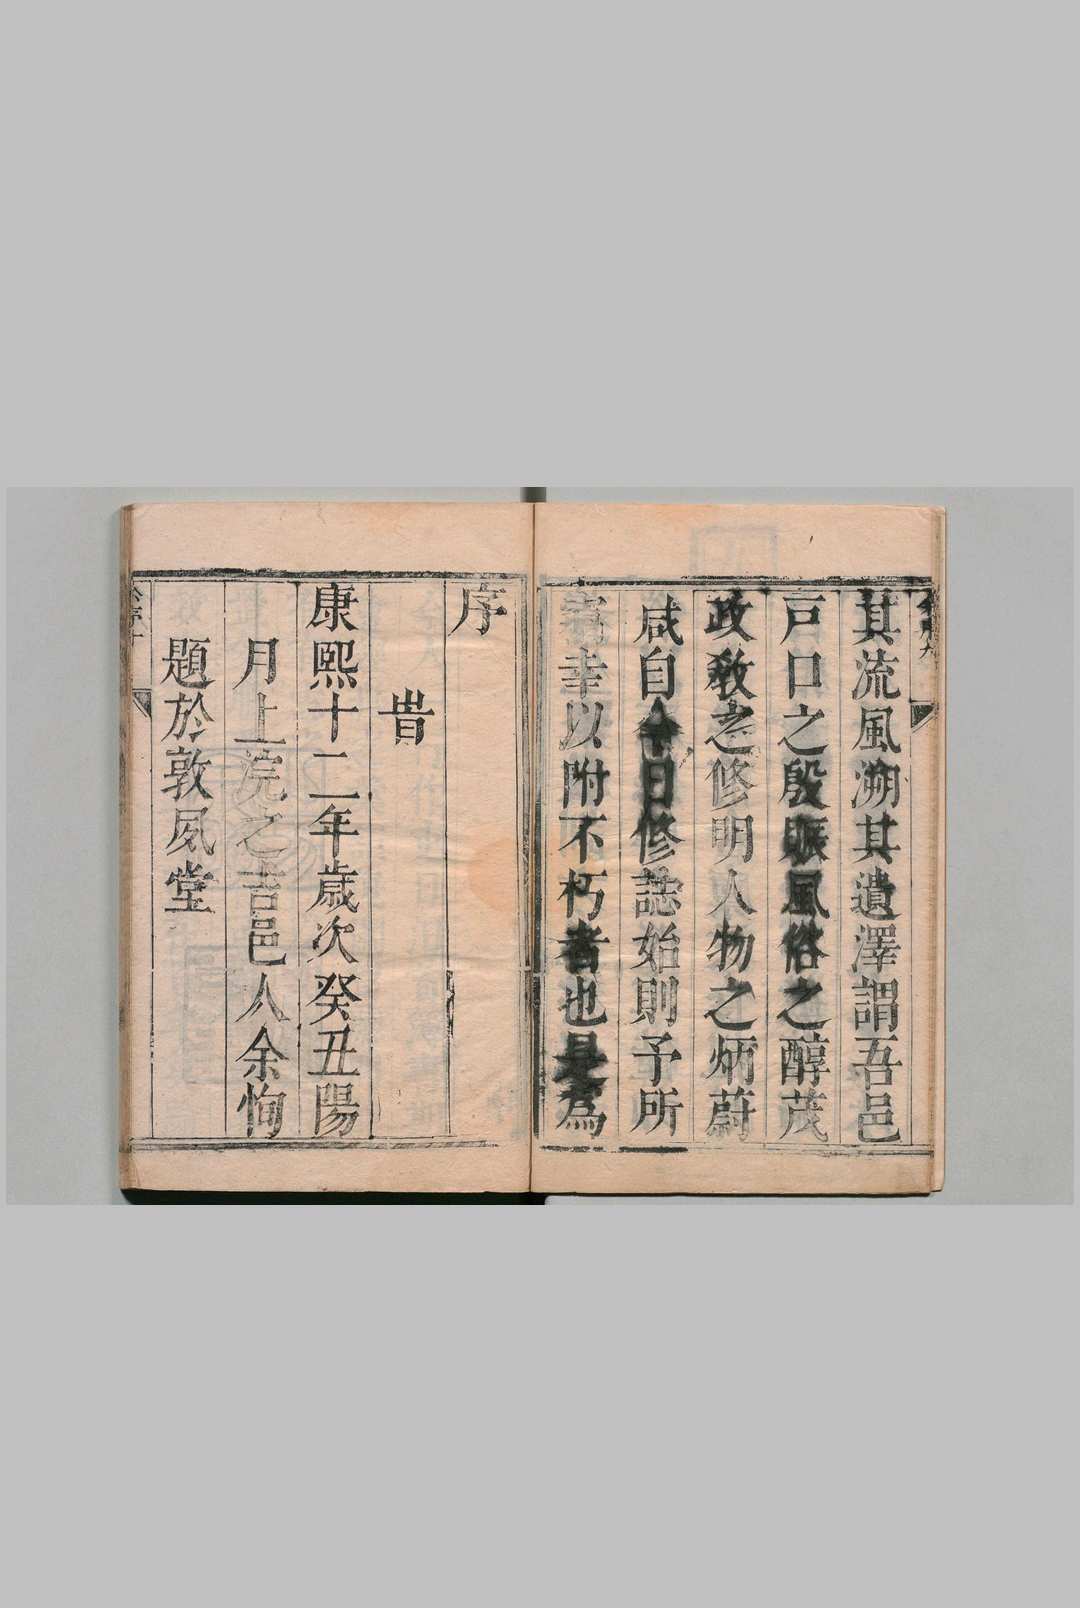 其流風溯其遺澤謂吾邑
戸口之殷賑風俗之醇茂
政敎之修明人物之炳蔚
咸自今日修誌始則予所
幸以附不朽者也是爲
序
旹
康熙十二年歲次癸丑陽
月上浣之吉邑人余恂
題於敦夙堂